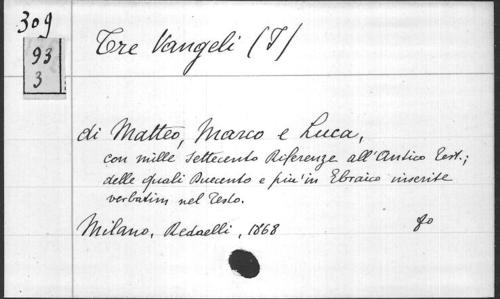 309
93
3
Tre Vangeli (I)
di Matteo, Marco e Luca,
con mille settecento Riferenze all'Antico Test.;
delle quali Duecento e piu' in Ebraico inserite
verbatim nel Testo.
Milano, Redaelli, 1868